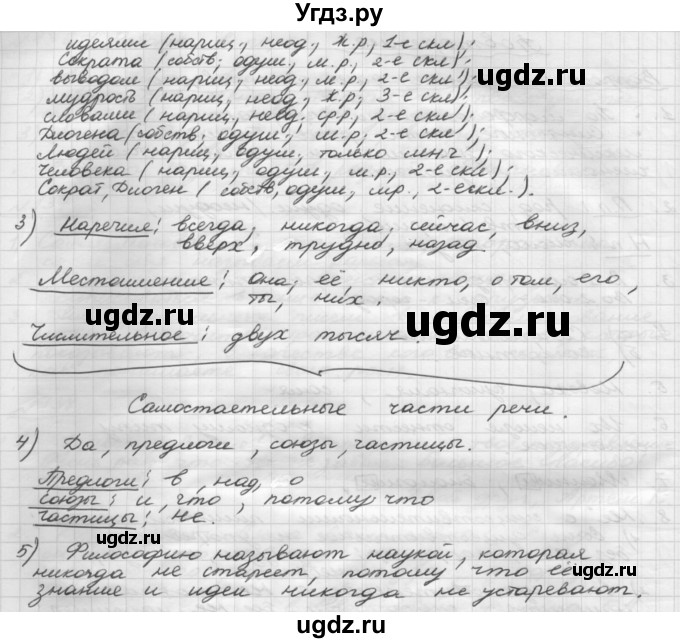 Угдз.ру
идеями (нариц., неод., ж.р, 1-е скл);
Сократа (собств; одуш, м.р., 2-е скл);
выводом (нариц., неод, м.р, 2-е скл);
мудрость (нариц, неод, ж.р; 3-е скл);
словами (нариц., неод. ср.р, 2-е скл);
Диогена (собств; одуш; м.р; 2-е скл);
Людей (нариц, одуш, только мн ч);
Человека (нариц, одуш, м.р, 2-е скл);
Сократ, Диоген (собств, одуш, мр., 2-е скл.).
3) Наречия: всегда, никогда, сейчас, вниз,
вверх, трудно, назад.
Местоимение: она, её, никто, о том, его,
ты, них.
Числительное: двух тысяч.
Самостоятельные части речи.
4) Да, предлоги, союзы, частицы.
Предлоги: в, над, о
союзы: и, что, потому что
частицы: не.
5) Философию называют наукой, которая
никогда не стареет, потому что её
знание и идеи никогда не устаревают.
угдз.ru
угдз.ru
угдз.ru
угдз.ru
угдз.ru
угдз.ru